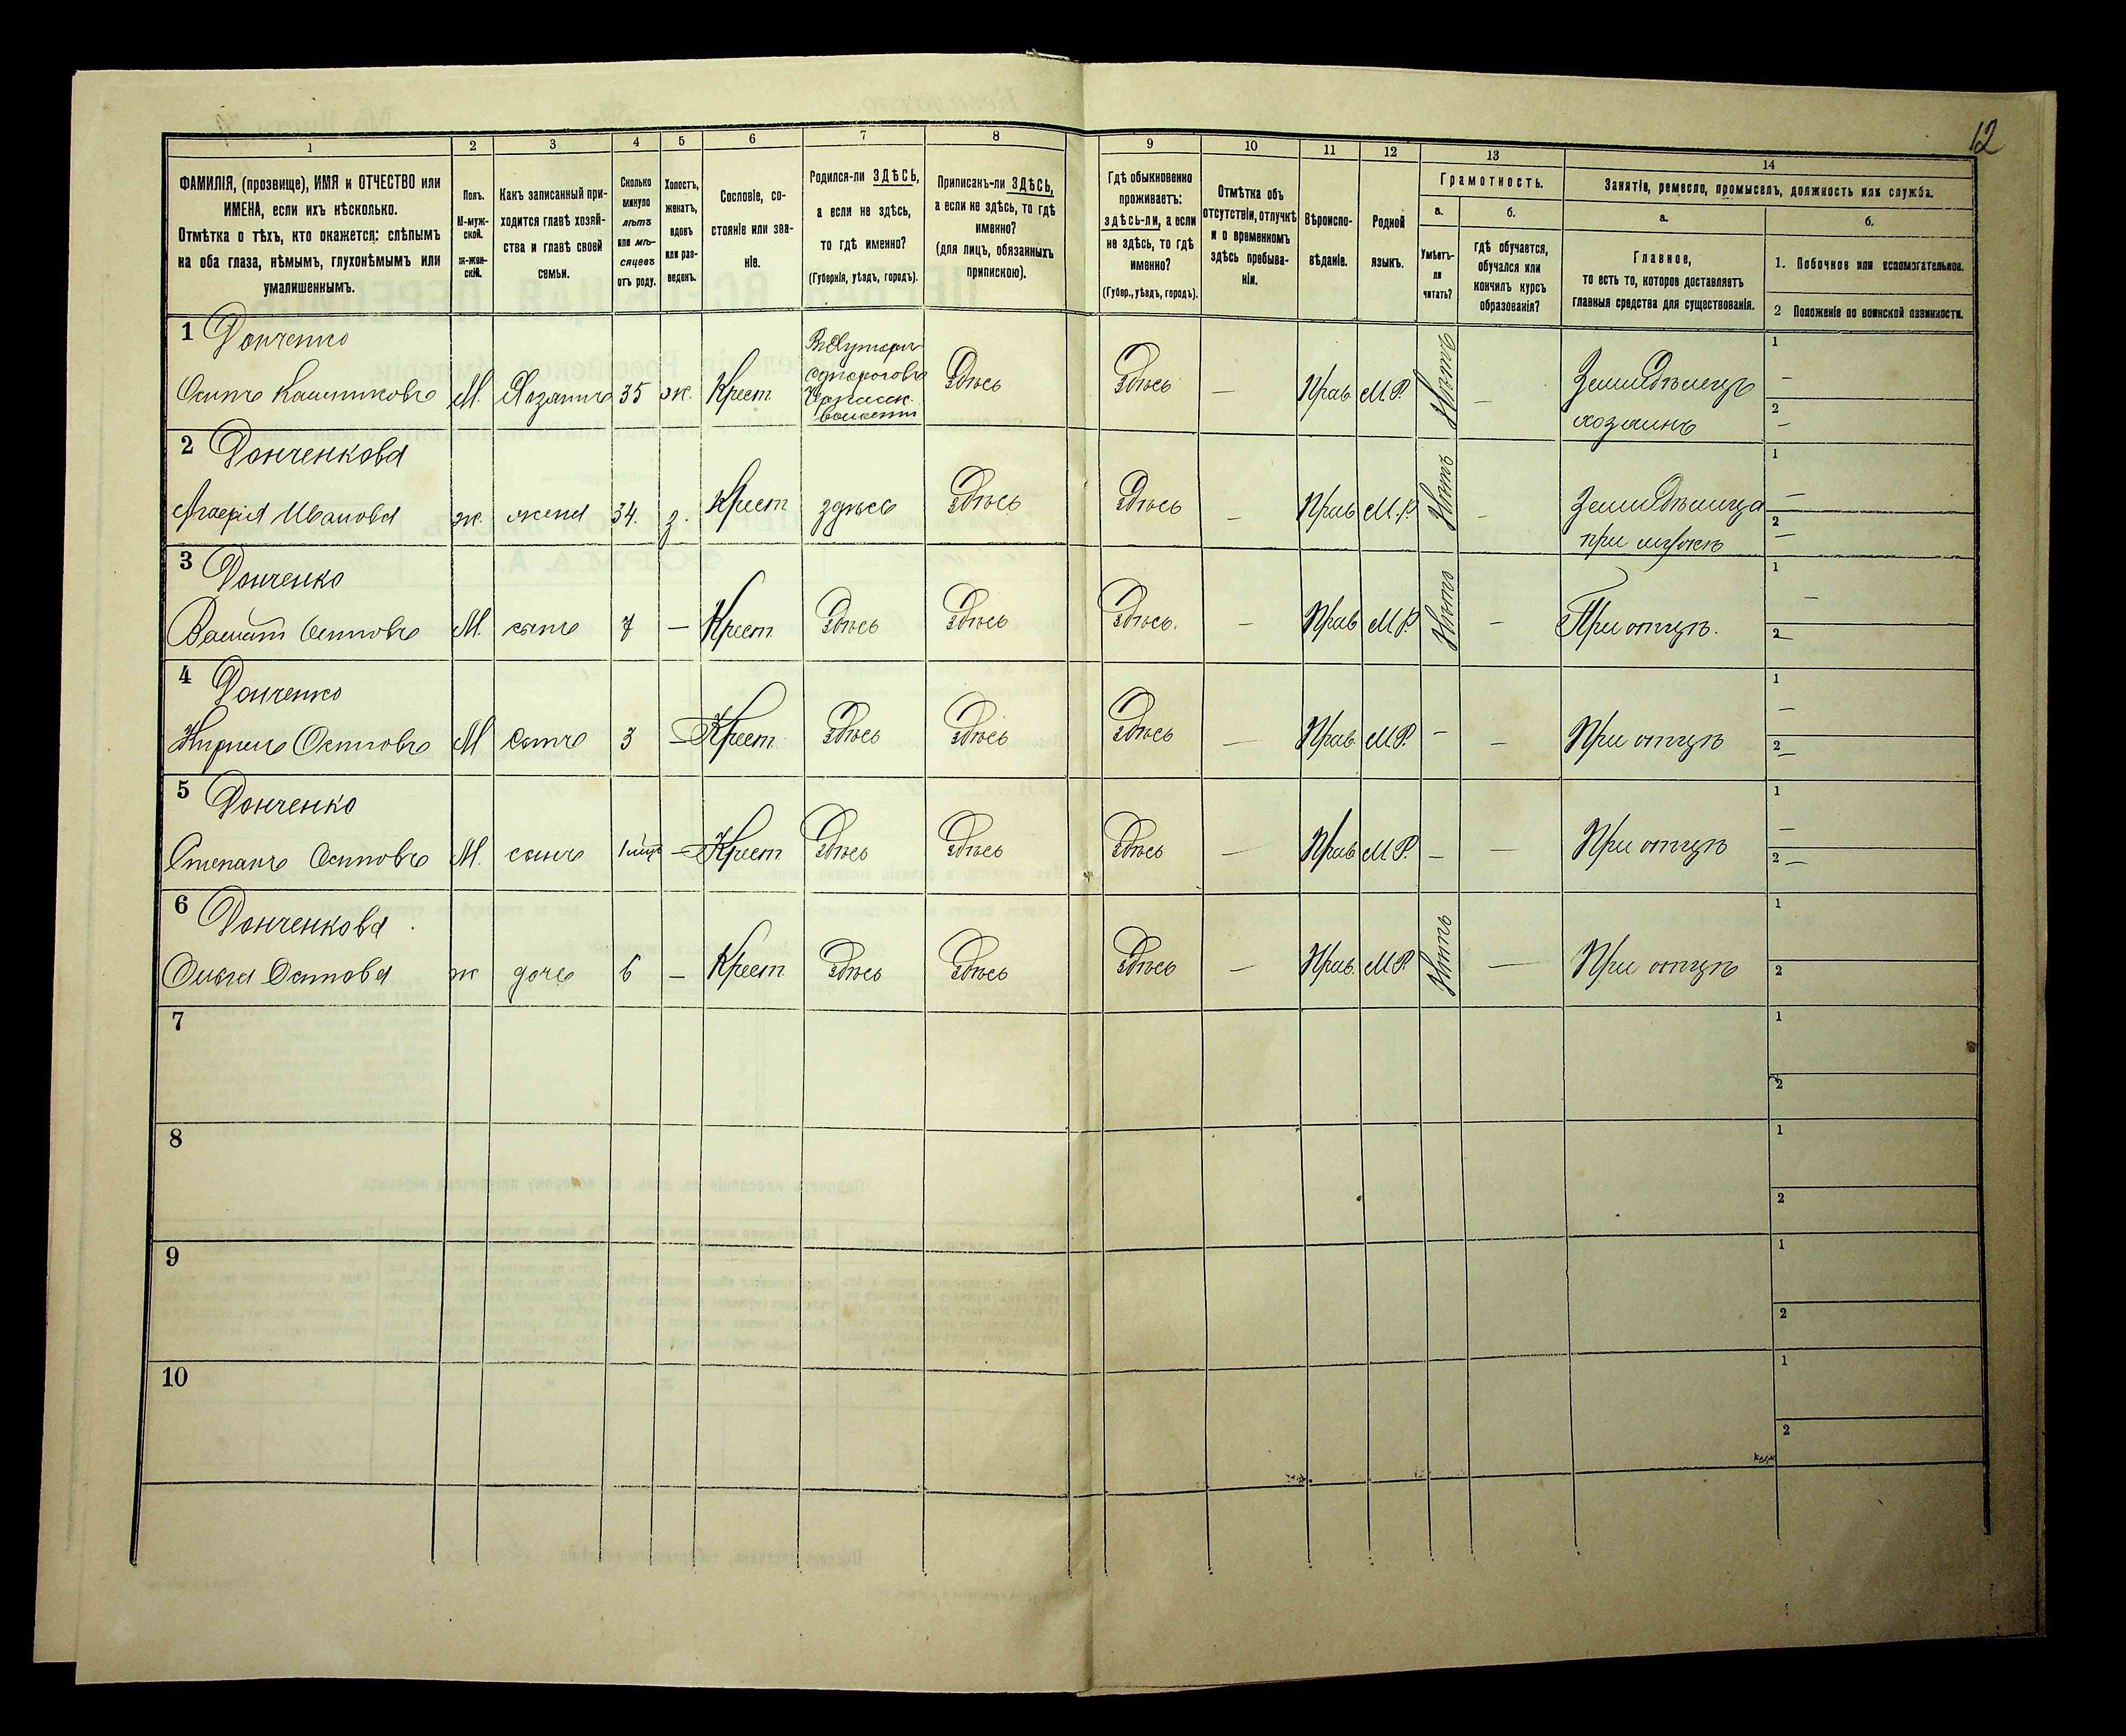 12
1 2 3 4 5 6 7 8 9 10 11 12 13 14
ФАМИЛІЯ, (прозвище), ИМЯ и ОТЧЕСТВО или
ИМЕНА, если ихъ нѣсколько.
Отмѣтка о тѣхъ, кто окажется: слѣпымъ
на оба глаза, нѣмымъ, глухонѣмымъ или
умалишеннымъ.
Полъ.
М-муж-
ской.
Ж-жен-
скій.
Какъ записанный при-
ходится главѣ хозяй-
ства и главѣ своей
семьи.
Сколько
минуло
лѣтъ
или мѣ-
сяцевъ
отъ роду.
Холостъ,
женатъ,
вдовъ
или раз-
веденъ.
Сословіе, со-
стояніе или зва-
ніе.
Родился-ли ЗДѢСЬ,
а если не здѣсь,
то гдѣ именно?
(Губернія, уѣздъ, городъ).
Приписанъ-ли ЗДѢСЬ,
а если не здѣсь, то гдѣ
именно?
(для лицъ, обязанныхъ
припискою).
Гдѣ обыкновенно
проживаетъ:
здѣсь-ли, а если
не здѣсь, то гдѣ
именно?
(Губер., уѣздъ, городъ).
Отмѣтка объ
отсутствіи, отлучкѣ
и о временномъ
здѣсь пребыва-
ніи.
Вѣроиспо-
вѣданіе.
Родной
языкъ.
Грамотность.
а.
Умѣетъ-
ли
читать?
б.
гдѣ обучается,
обучался или
кончилъ курсъ
образованія?
Занятіе, ремесло, промыселъ, должность или служба.
а.
Главное,
то есть то, которое доставляетъ
главныя средства для существованія.
б.
1. Побочное или вспомогательное.
2 Положеніе по воинской повинности.
1 Донченко
Осипъ М. Хозяинъ 35 ж. Крест Здѣсь Здѣсь — Прав М.Р. Нѣтъ — Земледѣлецъ 1 —
хозяинъ 2 —
2 Донченкова
Иванова ж. жена 34. з. Крест здѣсь Здѣсь Здѣсь — Прав М.Р. Нѣтъ — Земледѣлица 1 —
при мужѣ 2 —
3 Донченко
Осиповъ М. сынъ 7 — Крест Здѣсь Здѣсь Здѣсь. — Прав М.Р. Нѣтъ — При отцѣ. 1 —
2 —
4 Донченко
Осиповъ М сынъ 3 — Крест Здѣсь Здѣсь Здѣсь — Прав. М.Р. — — При отцѣ 1 —
2 —
5 Донченко
Степанъ Осиповъ М. сынъ 1 мѣс — Крест Здѣсь Здѣсь Здѣсь — Прав М.Р. — — При отцѣ 1 —
2 —
6 Донченкова
Ольга Осипова ж дочь 6 — Крест Здѣсь Здѣсь Здѣсь — Прав. М.Р. Нѣтъ — При отцѣ 1
2
7 1
2
8 1
2
9 1
2
10 1
2